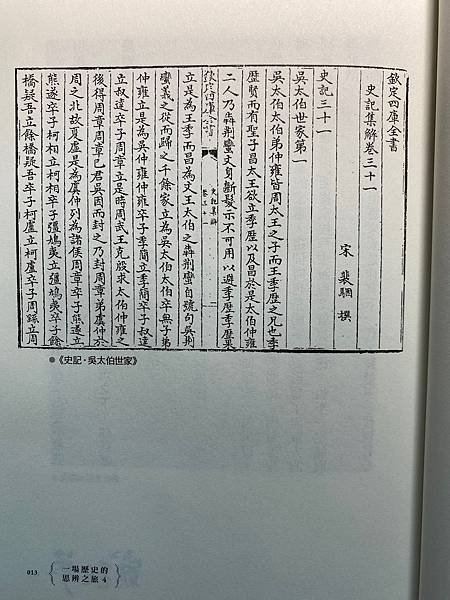 欽定四庫全書
史記集解卷三十一
宋 裴駰 撰
史記三十一
吳太伯世家第一
吳太伯太伯弟仲雍皆周太王之子而王季歷之兄也季
歷賢而有聖子昌太王欲立季歷以及昌於是太伯仲雍
二人乃犇荆蠻文身斷髮示不可用以避季歷季歷果
欽定四庫全書 史記集解 卷三十一
立是為王季而昌為文王太伯之犇荆蠻自號句吳荆
蠻義之從而歸之千餘家立為吳太伯太伯卒無子弟
仲雍立是為吳仲雍仲雍卒子季簡立季簡卒子叔達
立叔達卒子周章立是時周武王克殷求太伯仲雍之
後得周章周章已君吳因而封之乃封周章弟虞仲於
周之北故夏虛是為虞仲列為諸侯周章卒子熊遂立
熊遂卒子柯相立柯相卒子彊鳩夷立彊鳩夷卒子餘
橋疑吾立餘橋疑吾卒子柯盧立柯盧卒子周繇立周
●《史記·吳太伯世家》
013
一場歷史的
思辨之旅4